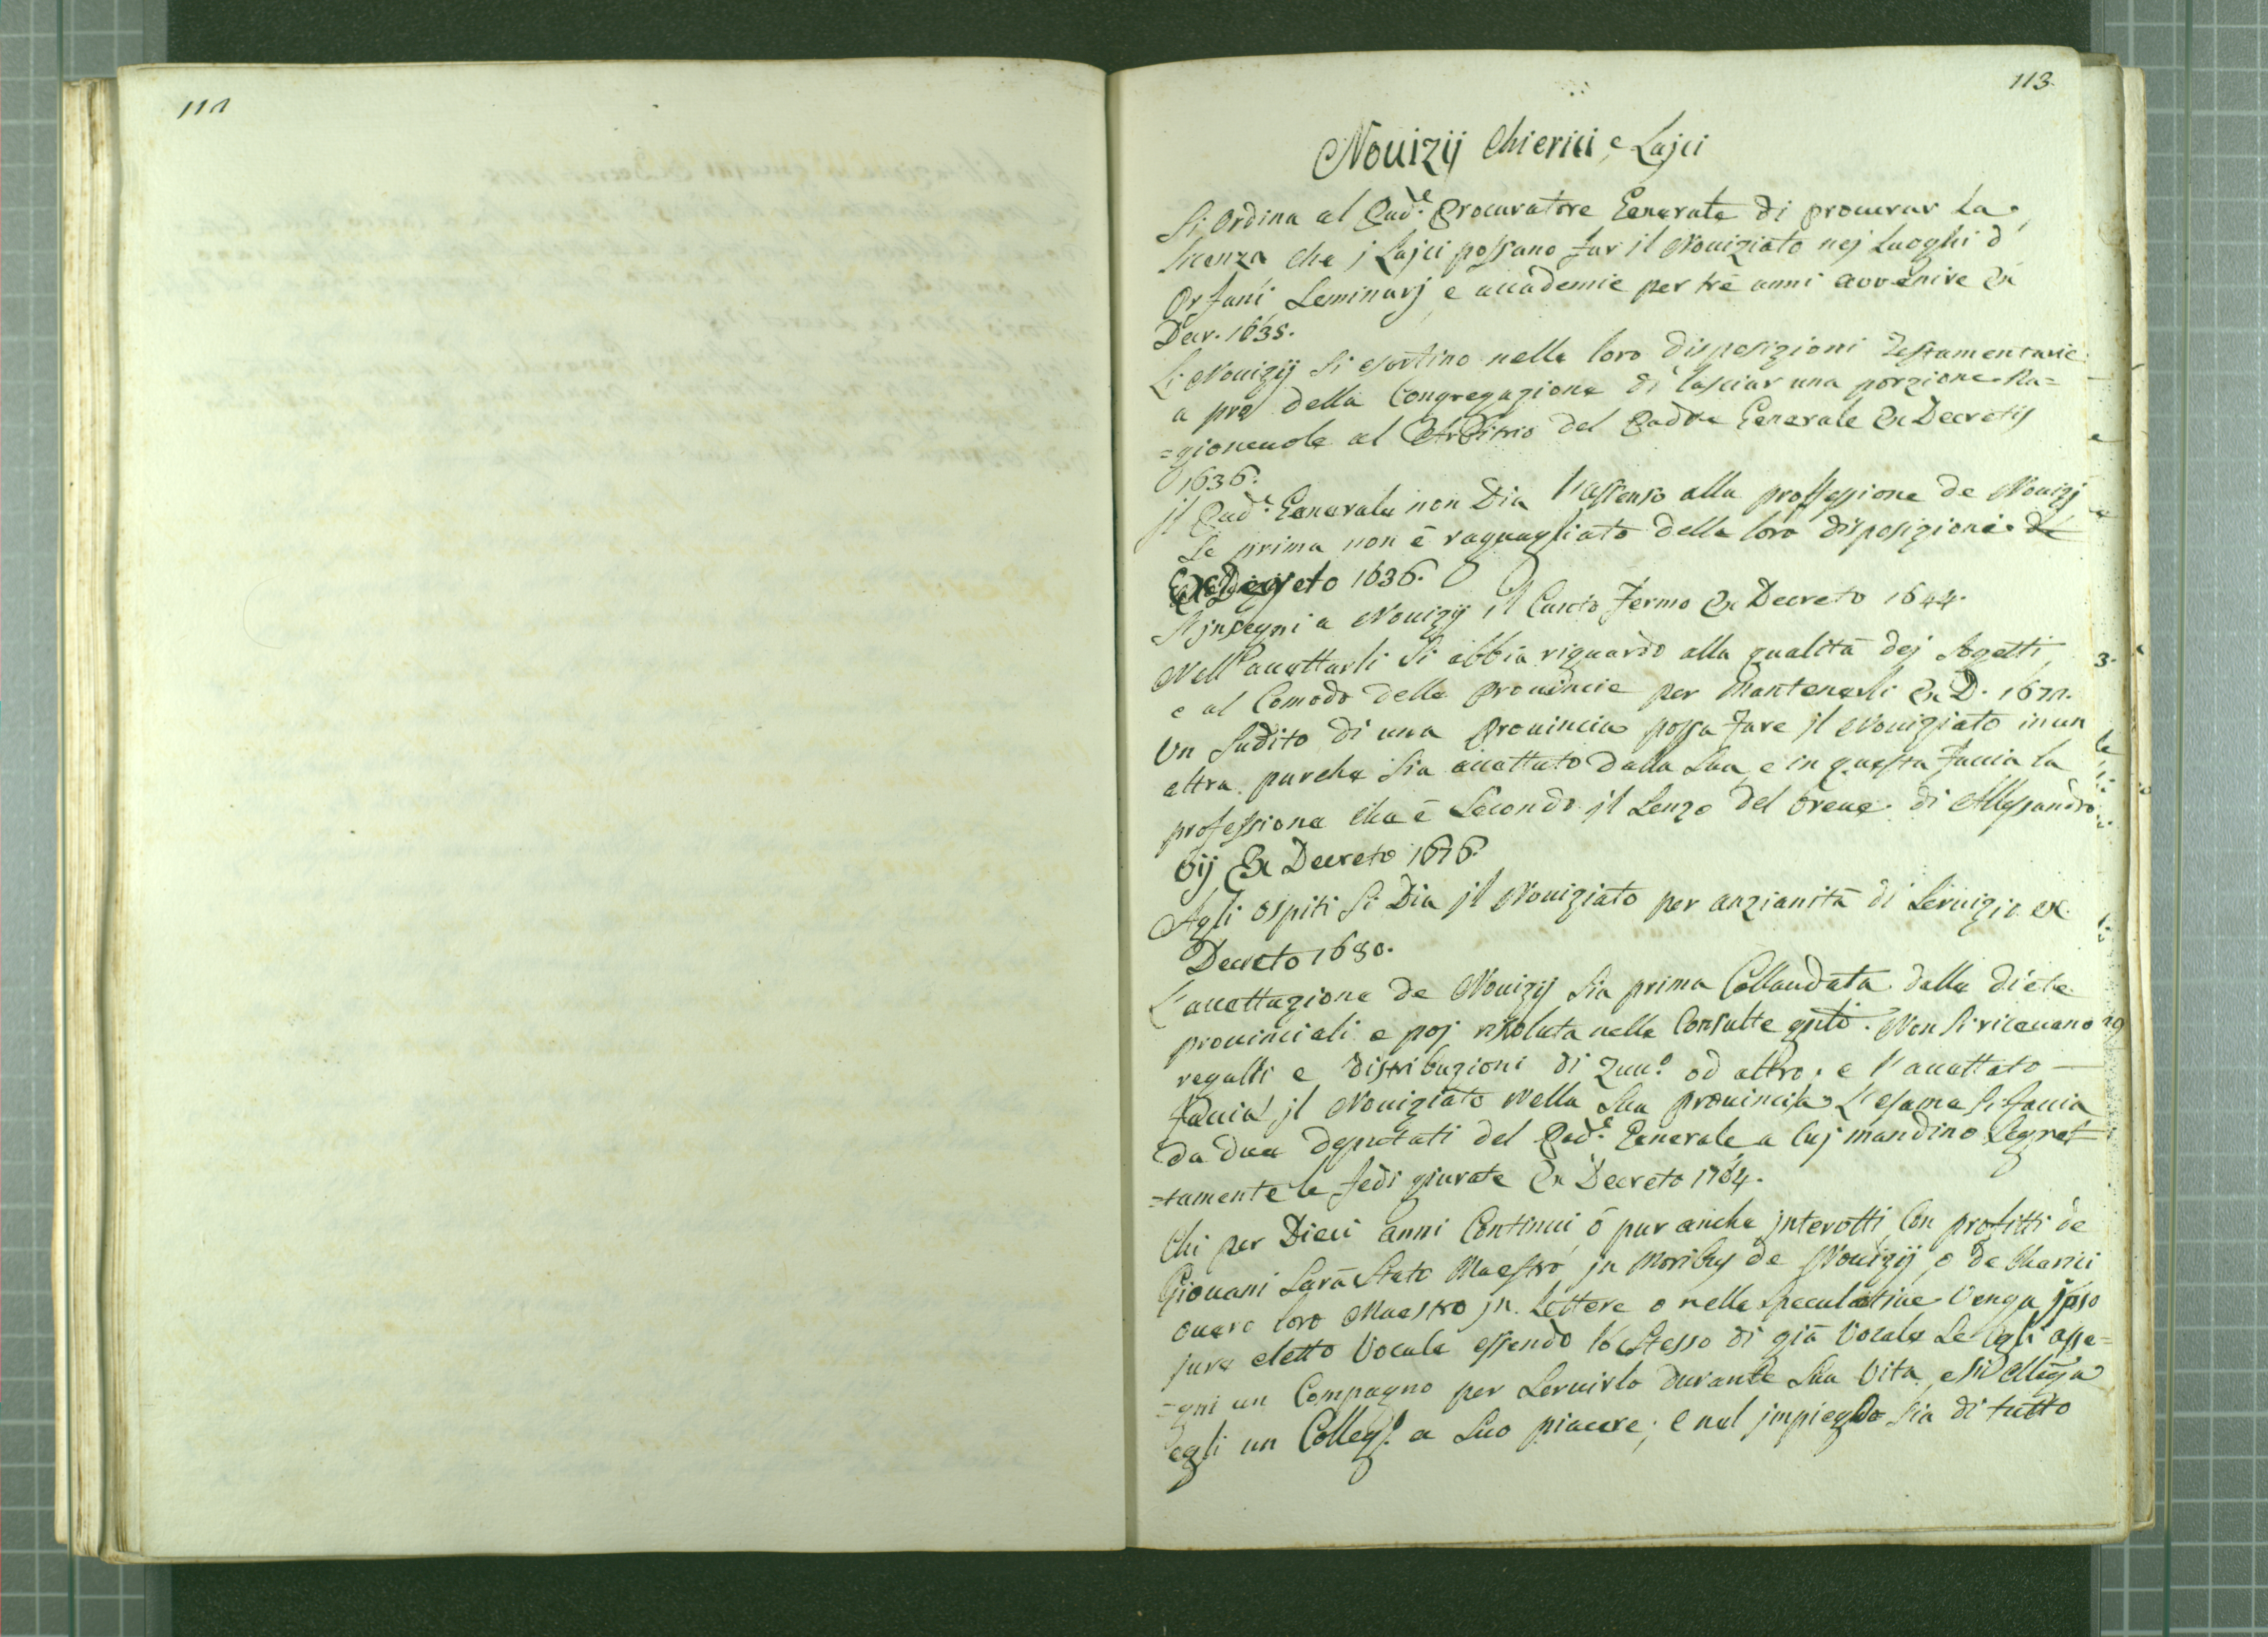 112
113.
Nouizij Chierici, e Lajci
Si Ordina al Pad.e Procuratore Generale di procurar La
licenza che j Lajci possano far il Nouiziato nej Luoghi d'
Orfani, Seminarj e accademie per trè anni avvenire Ex
Decr. 1635.
Li Nouizij Si esortino nelle loro disposizioni Testamentarie
a prò della Congregazione di lasciar una porzione Ra=
=gioneuole al Arbitrio del Padre Generale Ex Decretis
1636.
jl Pad.e Generale non Dia l'assenso alla proffessione de Nouizj
Se prima non è raguagliato della loro disposizione
Ex Decreto 1636.
S'jnsegni a Nouizij il Canto Fermo Ex Decreto 1644.
Nell'accettarli Si abbia riguardo alla qualità dej Sogetti
e al Comodo delle prouincie per Mantenerli Ex D. 1672.
Un Sudito di una Prouincia possa fare jl Nouiziato in un
altra purche Sia accettato dalla Sua, e in questa faccia la
professione che è Secondo jl Senzo del breue di Allessandro
Vij Ex Decreto 1676.
Agli ospiti Si Dia jl Nouiziato per anzianità di Seruizio ex
Decreto 1680.
L'accettazione de Nouizij Sia prima Collaudata dalle diete
prouinciali e poj risoluta nelle Consulte Non Si riceuano
regalli e distribuzioni di Zucc.o od altro; e l'accettato
faccia jl Nouiziato Nella Sua prouincia, L'esame Si faccia
da due deputati del Pad.e Generale a luj mandino Segret=
=tamente le fedi giurate Ex Decreto 1764.
Chi per Dieci anni Continui ò pur anche jnterotti Con profitti de
Giouani Sarà Stato Maestro jn Moribus de Nouizij, o de Cherici
ouero loro Maestro jn Lettere o nelle Speculatiue Venga jpso
jure eletto Vocale essendo lo Stesso di già Vocale Se egli asse=
=gni un Compagno per Seruirlo durante Sua Vita, e Si Ellega
egli un Colleg.o a Suo piacere; e nel jmpiego Sia di tutto